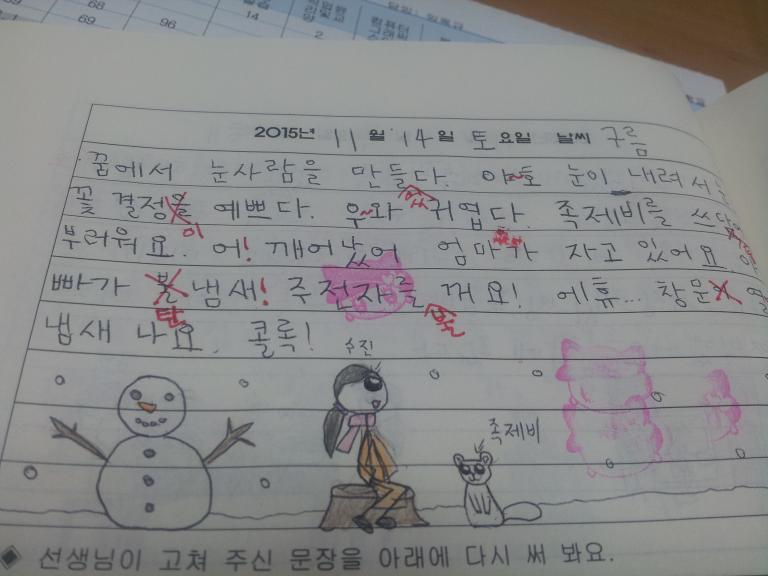 68
69
96
14
2
2015년 11월 14일 토요일 날씨 구름
꿈에서 눈사람을 만들다. 야~호 눈이 내려서
꽃 결정을 예쁘다. 우~와 귀엽다. 족제비를 쓰다
이
부러워요. 어! 깨어났어 엄마가 자고 있어요
빠가 불냄새! 주전자를 꺼요! 에휴... 창문
탄
냄새 나요. 콜록!
수진
족제비
◆ 선생님이 고쳐 주신 문장을 아래에 다시 써 봐요.